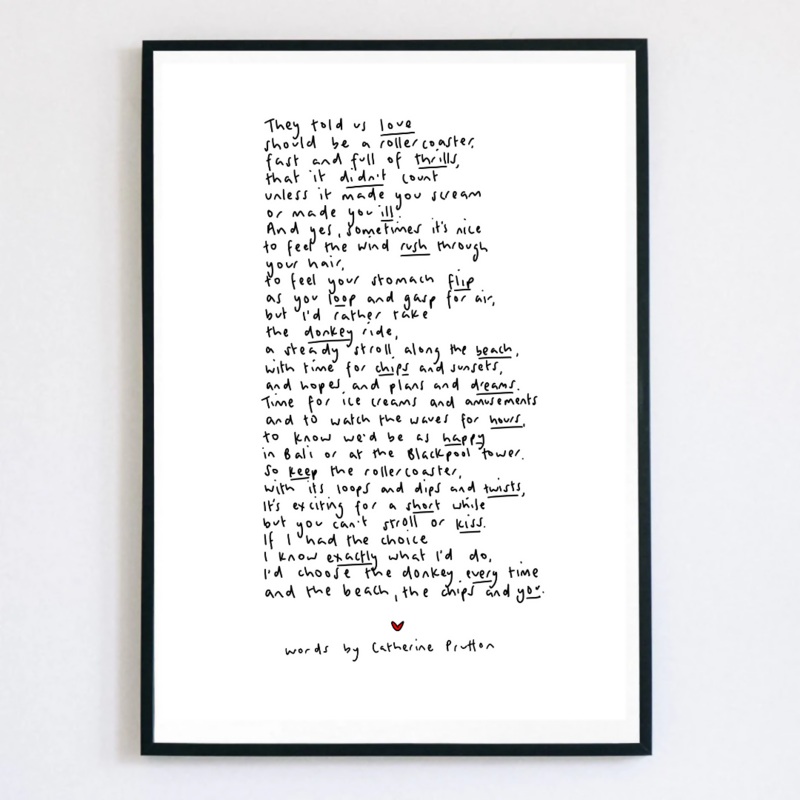 They told us love
should be a rollercoaster,
fast and full of thrills,
that it didn't count
unless it made you scream
or made you ill.
And yes, sometimes it's nice
to feel the wind rush through
your hair,
to feel your stomach flip
as you loop and gasp for air,
but I'd rather take
the donkey ride,
a steady stroll along the beach,
with time for chips and sunsets,
and hopes and plans and dreams.
Time for ice creams and amusements
and to watch the waves for hours,
to know we'd be as happy
in Bali or at the Blackpool tower.
So keep the rollercoaster,
with its loops and dips and twists,
It's exciting for a short while
but you can't stroll or kiss.
If I had the choice
I know exactly what I'd do,
I'd choose the donkey every time
and the beach, the chips and you.
words by Catherine Prutton